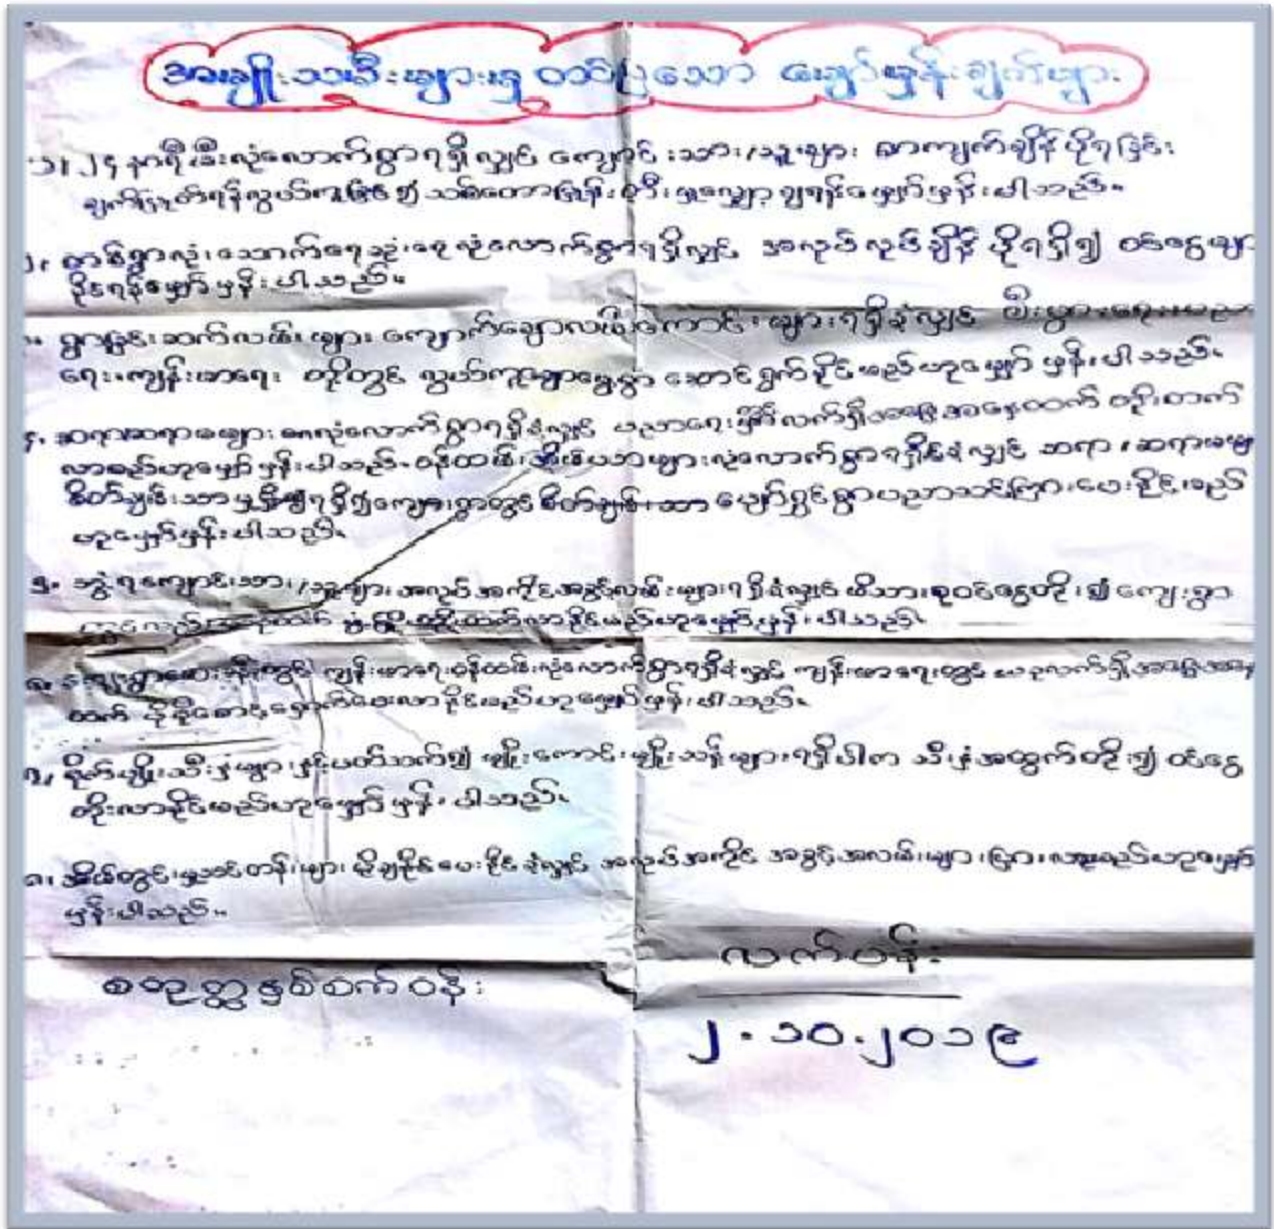 အမျိုးသမီးများမှ တင်ပြသော မျှော်မှန်းချက်များ
၁။ ၂၄ နာရီမီးလုံလောက်စွာရရှိလျှင် ကျောင်းသား/သူများ စာကျက်ချိန်ပိုရခြင်း
ချက်ပြုတ်ရန်လွယ်ကူခြင်း၍ သစ်တောပြုန်းတီးမှုလျှော့ချရန်မျှော်မှန်းပါသည်။
၂။ တစ်ရွာလုံးသောက်ရေသုံးရေလုံလောက်စွာရရှိလျှင် အလုပ်လုပ်ချိန် ပိုရရှိ၍ ဝင်ငွေများ
နိုင်ရန်မျှော်မှန်းပါသည်။
ရွာချင်းဆက်လမ်းများ ကျောက်ချောလမ်းကောင်းများရရှိခဲ့လျှင် စီးပွားရေး၊ပညာ
ရေး၊ကျန်းမာရေး တို့တွင် လွယ်ကူချောမွေ့စွာ ဆောင်ရွက်နိုင်မည်ဟုမျှော်မှန်းပါသည်။
၄. ဆရာဆရာမများ လုံလောက်စွာရရှိခဲ့လျှင် ပညာရေး လက်ရှိအခြေအနေထက် တိုးတက်
လာမည်ဟုမျှော်မှန်းပါသည်။ ဝန်ထမ်းအိမ်ယာများလုံလောက်စွာရရှိခဲ့လျှင် ဆရာ၊ဆရာမများ
စိတ်ချမ်းသာမှုရရှိ၍ကျေးရွာတွင် ပျော်ရွှင်စွာပညာသင်ကြားပေးနိုင်မည်
ဟုမျှော်မှန်းပါသည်။
၅. ဘွဲ့ရကျောင်းသား/သူများ အလုပ်အကိုင်အခွင့်လမ်းများရရှိခဲ့လျှင် မိသားစုဝင်ငွေတိုး၍ ကျေးရွာ
တိုးတက်လာနိုင်မည်ဟုမျှော်မှန်းပါသည်။
၆. ကျေးရွာဆေးခန်းတွင် ကျန်းမာရေးဝန်ထမ်းလုံလောက်စွာရရှိခဲ့လျှင် ကျန်းမာရေးတွင် ယခုလက်ရှိအခြေအနေ
ထက် ပိုမိုစောင့်ရှောက်ပေးလာနိုင်မည်ဟုမျှော်မှန်းပါသည်။
၇. စိုက်ပျိုးသီးနှံများနှင့်ပတ်သက်၍ မျိုးကောင်းမျိုးသန့်များရရှိပါက သီးနှံအထွက်တိုး၍ ဝင်ငွေ
တိုးလာနိုင်မည်ဟုမျှော်မှန်းပါသည်။
၈။ အိမ်တွင်းမှုသင်တန်းများ ပို့ချပေးနိုင်ခဲ့လျှင် အလုပ်အကိုင် အခွင့်အလမ်းများ မည်ဟုမျှော်
မှန်းပါသည်။
လက်ပန်း
၂.၁၀.၂၀၁၉